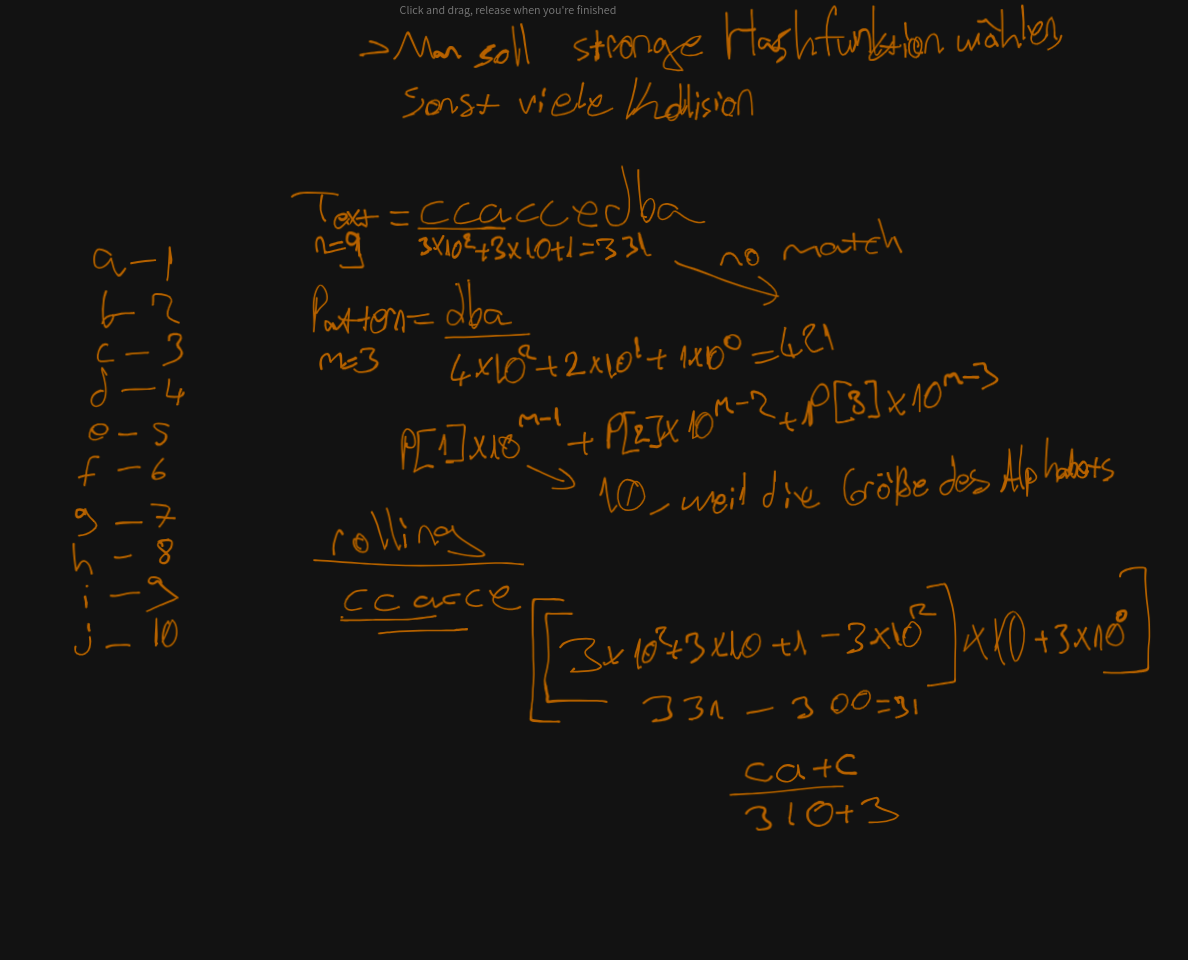 Click and drag, release when you're finished
→ Man soll strange Hashfunktion wählen,
Sonst viele Kollision
Text = ccaccedba
n=9
3×10²+3×10+1=331
no match
Pattern = dba
m=3
4×10²+2×10¹+1×10⁰=421
P[1]×10^m-1 + P[2]×10^m-2 + P[3]×10^m-3
10, weil die Größe des Alphabets
a-1
b-2
c-3
d-4
e-5
f-6
g-7
h-8
i-9
j-10
rolling
ccacce
[[3×10²+3×10+1-3×10²]×10+3×10⁰]
331-300=31
ca+c
310+3